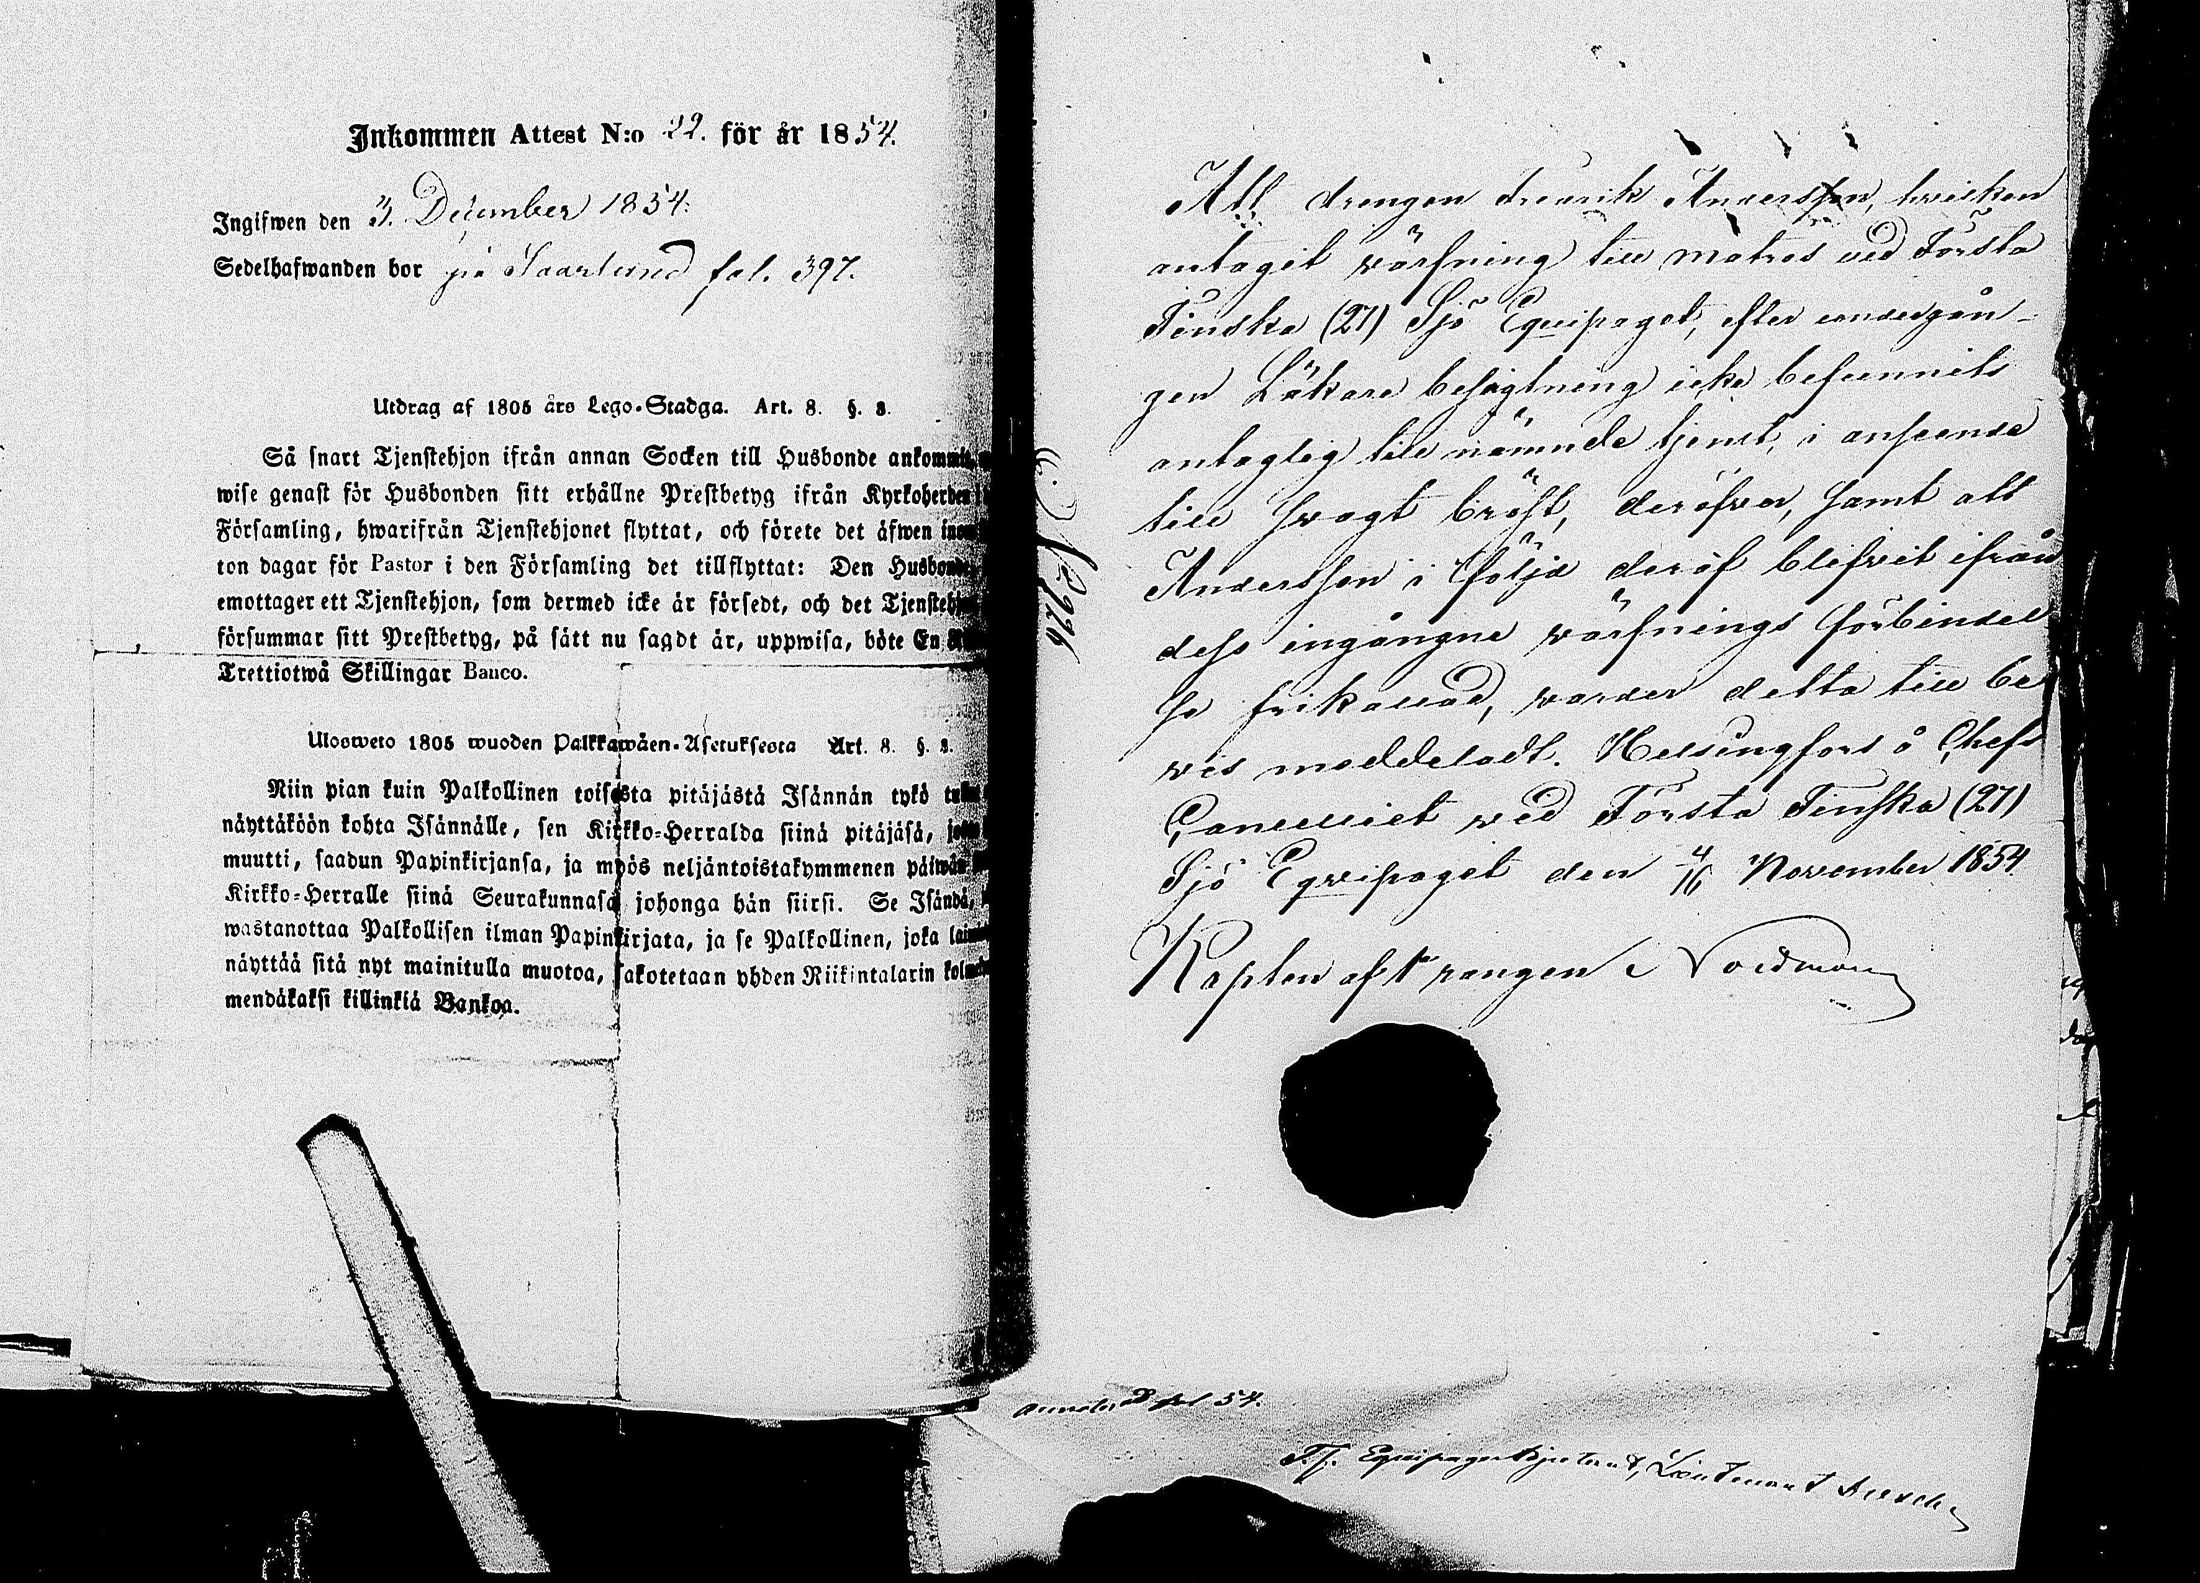 Inkommen Attest N:o 22. för år 1854.
Ingifwen den 3. December 1854.
Sedelhafwanden bor på Saarlund fol. 397.
Utdrag af 1805 års Lego-Stadga. Art. 8. §. 3.
Så snart Tjenstehjon ifrån annan Socken till Husbonde ankommit,
wise genast för Husbonden sitt erhållne Prestbetyg ifrån Kyrkoherden
Församling, hwarifrån Tjenstehjonet flyttat, och förete det äfwen inom
ton dagar för Pastor i den Församling det tillflyttat: Den Husbonde
emottager ett Tjenstehjon, som dermed icke är försedt, och det Tjenstehjon
försummar sitt Prestbetyg, på sätt nu sagdt är, uppwisa, böte En
Trettiotwå Skillingar Banco.
Uloswето 1805 wuoden Palkkawäen-Asetuksesta Art. 8. §. 3.
Niin pian kuin Palkollinen toisesta pitäjästä Isännän tykö
näyttäköön kohta Isännälle, sen Kirkko-Herralda siinä pitäjäsä,
muutti, saadun Papinkirjansa, ja myös neljäntoistakymmenen päiwän
Kirkko-Herralle siinä Seurakunnasa johonga hän siirsi. Se Isändä,
wastanottaa Palkollisen ilman Papinkirjata, ja se Palkollinen, joka
näyttää sitä nyt mainitulla muotoa, sakotetaan yhden Riikintalarin
mendäkaksi killinkiä Bankoa.
N 2926
Att drengen Fredrik Andersson, hvilken
antagit värfning till matros ved Första
Finska (27) Sjö Equipaget, efter undergån-
gen Läkare besigtning icke befunnits
antaglig till nämnde tjenst, i anseende
till svagt bröst, deröfver, samt att
Andersson i följe deraf blifvit ifrån
dess ingångne värfnings förbindel
se frikallad, varder detta till be
vis meddeladt. Helsingfors å Chefs
Cancelliet ved Första Finska (27)
Sjö Eqvipaget den 4/16 November 1854
Kapten af 1 rangen Nordman
fol 54.
T.f. Equipageadjutant, Lieutenant